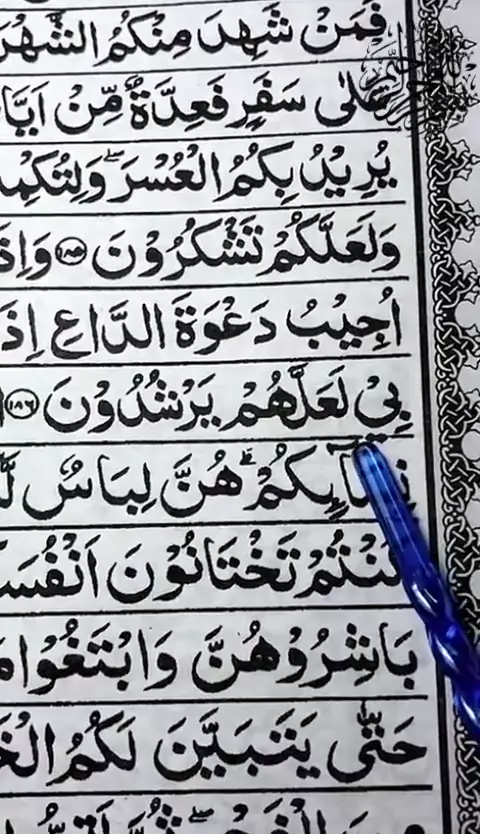 فَمَنْ شَهِدَ مِنْكُمُ الشَّهْرَ
عَلٰى سَفَرٍ فَعِدَّةٌ مِّنْ اَيَّا
يُرِيْدُ بِكُمُ الْعُسْرَ ۖ وَلِتُكْمِلُ
وَلَعَلَّكُمْ تَشْكُرُوْنَ ۝١٨٥ وَاِذَ
اُجِيْبُ دَعْوَةَ الدَّاعِ اِذَ
بِيْ لَعَلَّهُمْ يَرْشُدُوْنَ ۝١٨٦
نِسَآىِٕكُمْ ؕ هُنَّ لِبَاسٌ لَّ
كُنْتُمْ تَخْتَانُوْنَ اَنْفُسَ
بَاشِرُوْهُنَّ وَابْتَغُوْا مَ
حَتّٰى يَتَبَيَّنَ لَكُمُ الْخَ